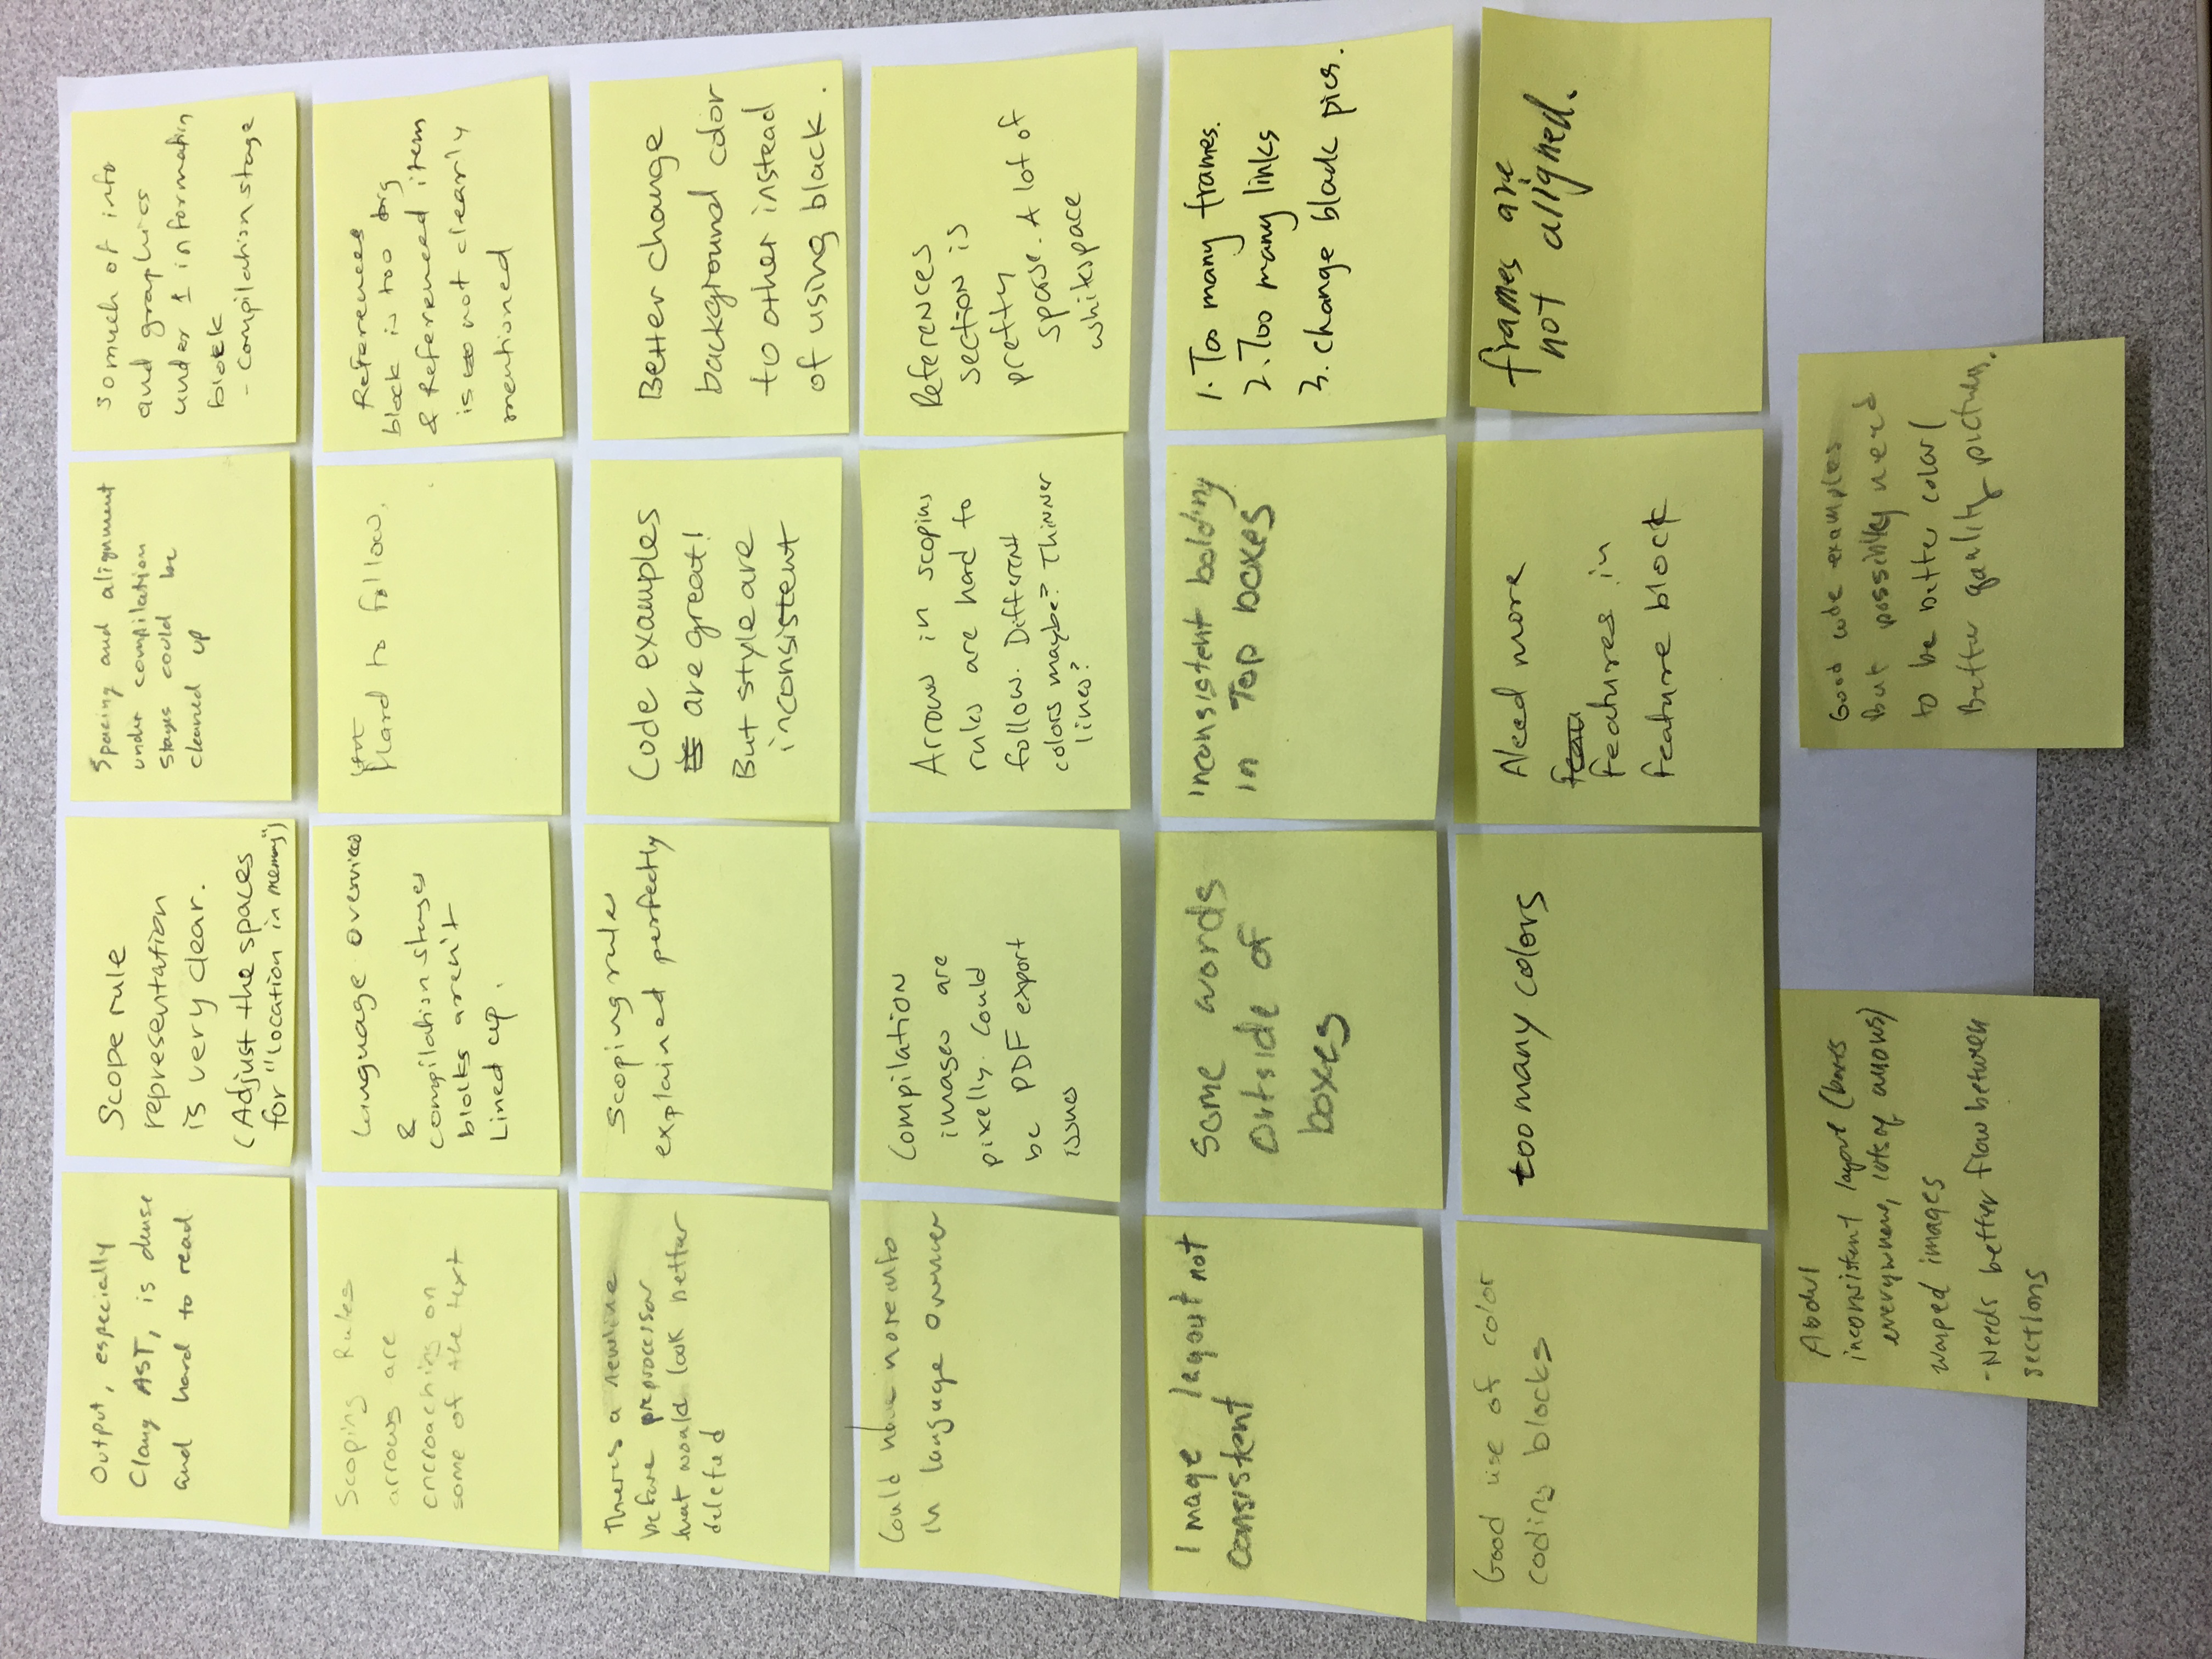 Output, especially
Clang AST, is dense
and hard to read
Scope rule
representation
is very clear.
(Adjust the spaces
for "location in memory")
Spacing and alignment
under compilation
stages could be
cleaned up
so much of info
and graphics
under 1 information
block
- Compilation stage
Scoping Rules
arrows are
encroaching on
some of the text
Language overview
&
compilation stages
blocks aren't
Lined up.
Hard to follow.
References
block is too big
& Referenced item
is not clearly
mentioned
There's a newline
before preprocessor
that would look better
deleted
Scoping rules
explained perfectly
Code examples
are great!
But style are
inconsistent
Better change
background color
to other instead
of using black.
Could have more info
in language overview
Compilation
images are
pixelly. Could
be PDF export
issues
Arrows in scoping
rules are hard to
follow. Different
colors maybe? Thinner
lines?
References
section is
pretty
sparse. A lot of
whitespace
Image layout not
consistent
Some words
outside of
boxes
Inconsistent bolding
in Top boxes
1. Too many frames.
2. Too many links
3. change black pics.
Good use of color
coding blocks
too many colors
Need more
Features in
Feature block
frames are
not aligned.
Abdul
inconsistent layout (boxes
everywhere, lots of arrows)
warped images
-Needs better flow between
sections
Good code examples
But possibly need
to be better color/
Better quality pictures.